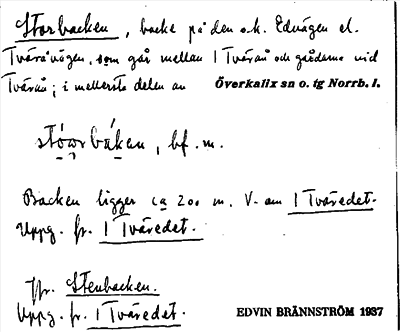 Storbacken, backe på den s.k. Edvägen el.
Tväråvägen, som går mellan 1 Tvärån och gårdarna vid
Tvärån; i mellersta delen av Överkalix sn o. tg Norrb. l.
bf. m.
Backen ligger ca 200 m. V. om 1 Tväredet.
Uppg. fr. 1 Tväredet.
Jfr. Stenbacken.
Uppg. fr. 1 Tväredet.
EDVIN BRÄNNSTRÖM 1937